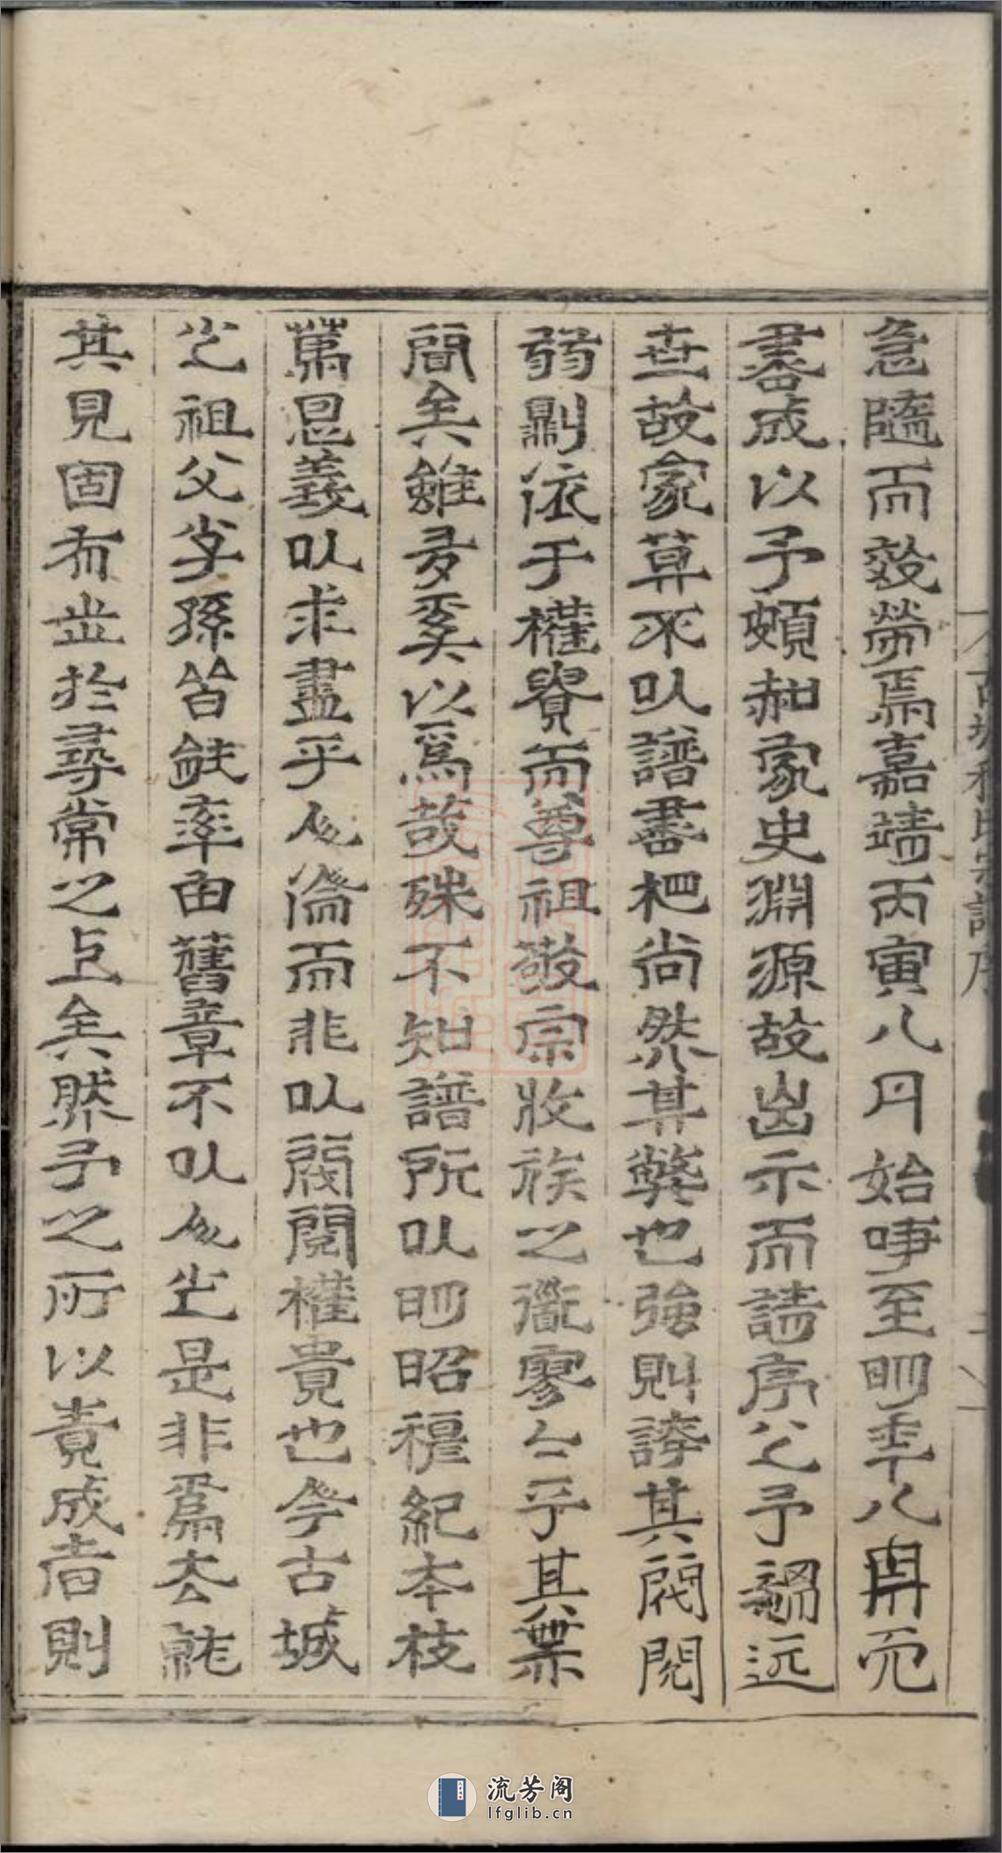 急隨而效勞焉嘉靖丙寅八月始事至明年八月而
書成以予頗知家史淵源故出示而請序之予謂近
世故家莫不以譜書相尚然其弊也強則誇其閥閱
弱則依于權貴而尊祖敬宗收族之道寥寥乎其無
聞矣雖多奚以為哉殊不知譜所以明昭穆紀本枝
篤恩義以求盡乎人倫而非以閥閱權貴也今古城
之祖父子孫皆能率由舊章不以人之是非為去就
其見固有出於尋常之上矣然予之所以責成者則
古城程氏宗譜序
流芳阁
lfglib.cn